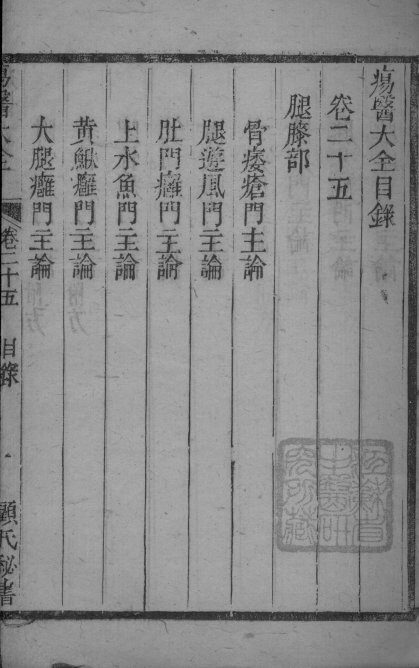 瘍醫大全目錄
卷二十五
腿膝部
骨痿瘡門主論
腿遊風門主論
肚門癰門主論
上水魚門主論
黃鰍癰門主論
大腿癰門主論
瘍醫大全
卷二十五 目錄 顧氏秘書